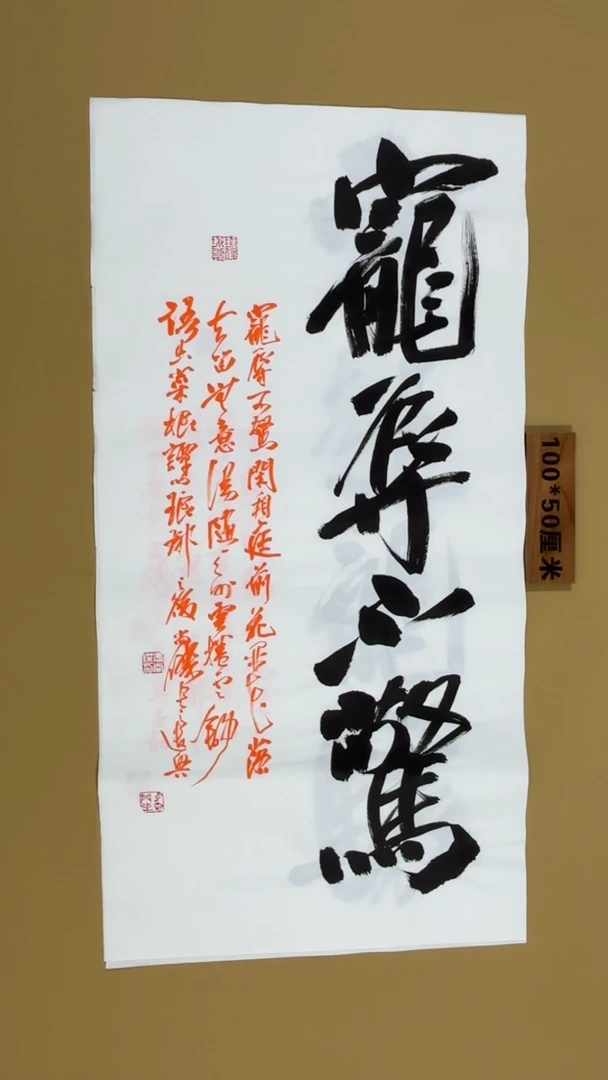 寵辱不驚
寵辱不驚閑看庭前花開花落
去留無意漫隨天外雲捲雲舒
語出菜根譚琅琊
100*50厘米